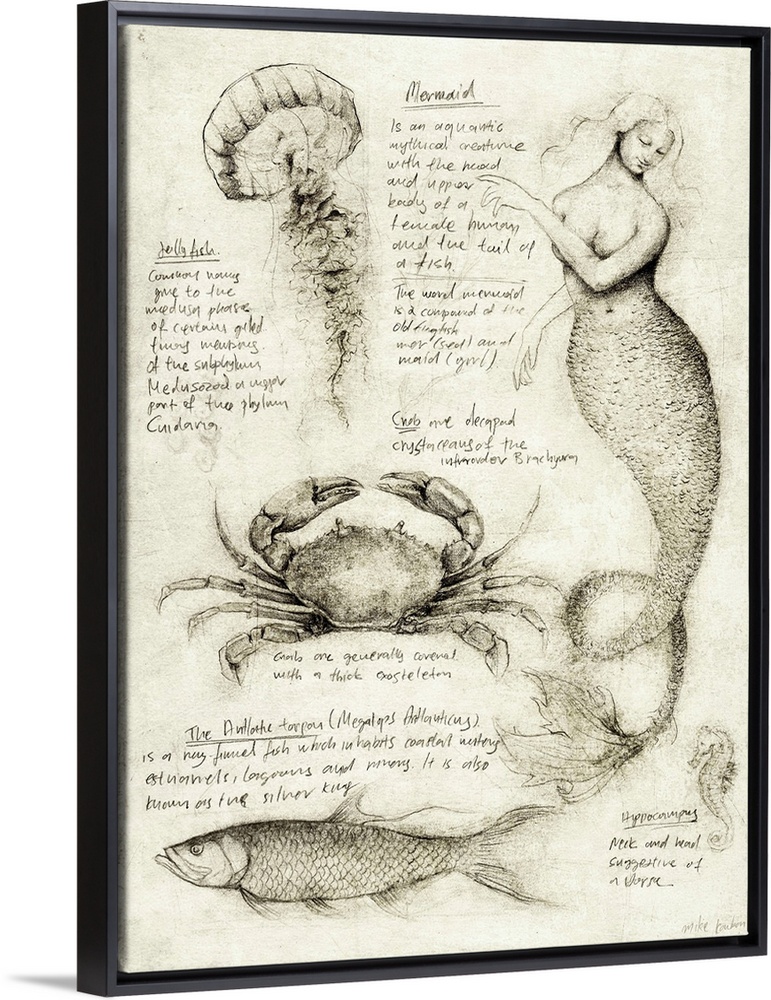 Mermaid
Is an aquantic
mythical creature
with the head
and upper
body of a
female human
and the tail of
a fish.
The word mermaid
is a compound of the
old english
mer (sea) and
maid (girl)
Jellyfish.
Common names
give to the
medusa phase
of certain
of the subphylum
Medusozoa a major
part of the phylum
Cnidaria
Crab are decapod
crystaceans of the
infraorder Brachyura
Crab are generally covered
with a thick exosteleton
The Atlantic tarpon (Megalops Atlanticus)
is a ray finned fish which inhabits coastal waters
estuaries, lagoons and rivers. It is also
known as the silver king
Hippocampus
Neck and head
suggestive of
a Horse
mike